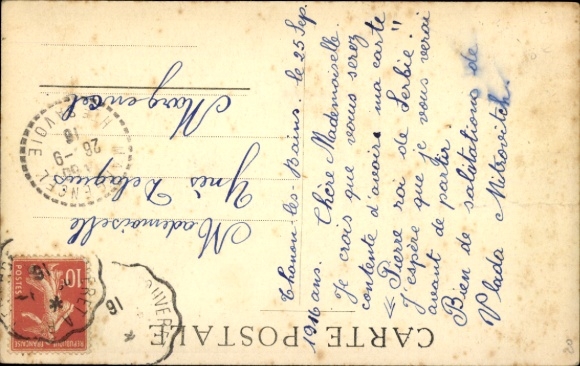 CARTE POSTALE
Thonon-les-Bains. le 25 Sep.
1916 ans. Chère Mademoiselle
Je crois que vous serez
contente d'avoir ma carte
« Pierre roi de Serbie"
J'espère que je vous verai
avant de partir.
Bien de salutations de
Vlada Mitrovitch.
Mademoiselle
Ynès Delagues
Margencel
MARGENCEL
26 -9
16
HTE SAVOIE
10
POSTES
REPUBLIQUE FRANÇAISE
16
16